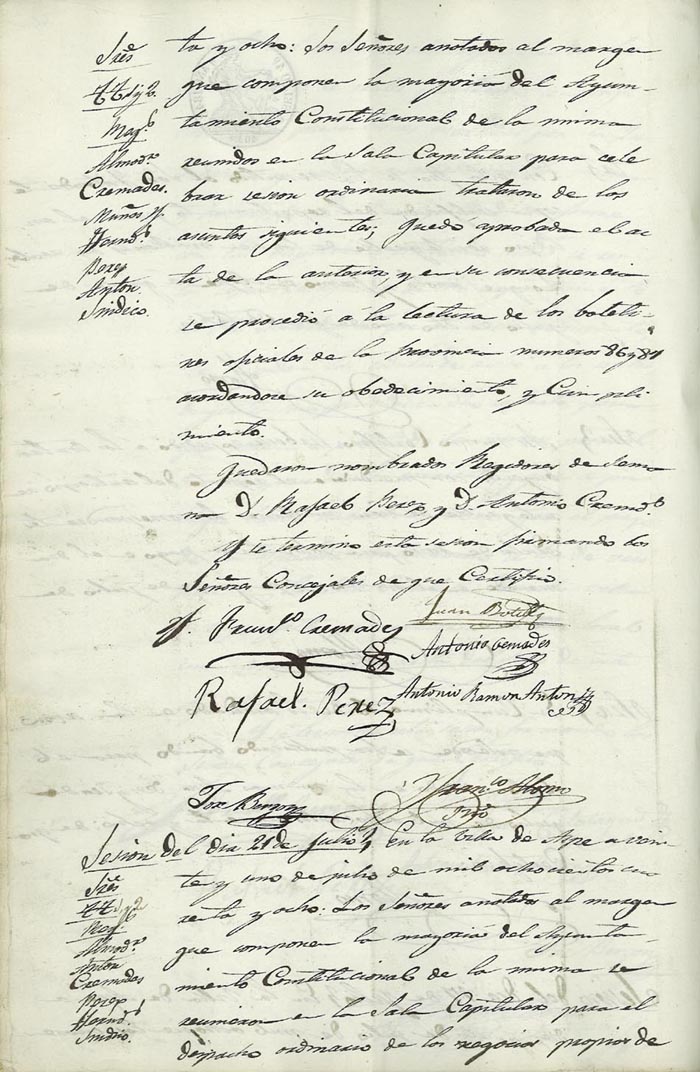 Sres
TTes 1y2.
Reg.s
Almod.r
Cremades.
Muñoz y.
Hernd.s
Perez
Anton
Sindico.
ta y ocho: Los Señores anotados al margen
que componen la mayoria del Ayun-
tamiento Constitucional de la misma
reunidos en la Sala Capitular para cele
brar sesion ordinaria trataron de los
asuntos siguientes; quedó aprobada el ac
ta de la anterior, y en su consecuencia
se procedió á la lectura de los boleti-
nes oficiales de la provincia numeros 86 y 87
acordandose su obedecimiento, y Cumpli-
miento.
Quedaron nombrados Regidores de Sema
na D. Rafael Perez y D. Antonio Cremd.s
Y se termino esta sesion firmando los
Señores Concejales de que Certifico.
Juan Botella
Franc.o Cremades
Antonio Cremades
Rafael Perez
Antonio Ramon Anton
Jose
Fran.co Alonso
Srio
Sesion del dia 21 de Julio
En la Villa de Aspe a vein-
Sres
TTes 1y2
Reg.s
Almod.r
Anton
Cremades
Perez
Hernd.s
Sindico.
te y uno de julio de mil ochocientos cua
renta y ocho: Los Señores anotados al margen
que componen la mayoria del Ayunta-
miento Constitucional de la misma se
reunieron en la Sala Capitular para el
despacho ordinario de los negocios propios de